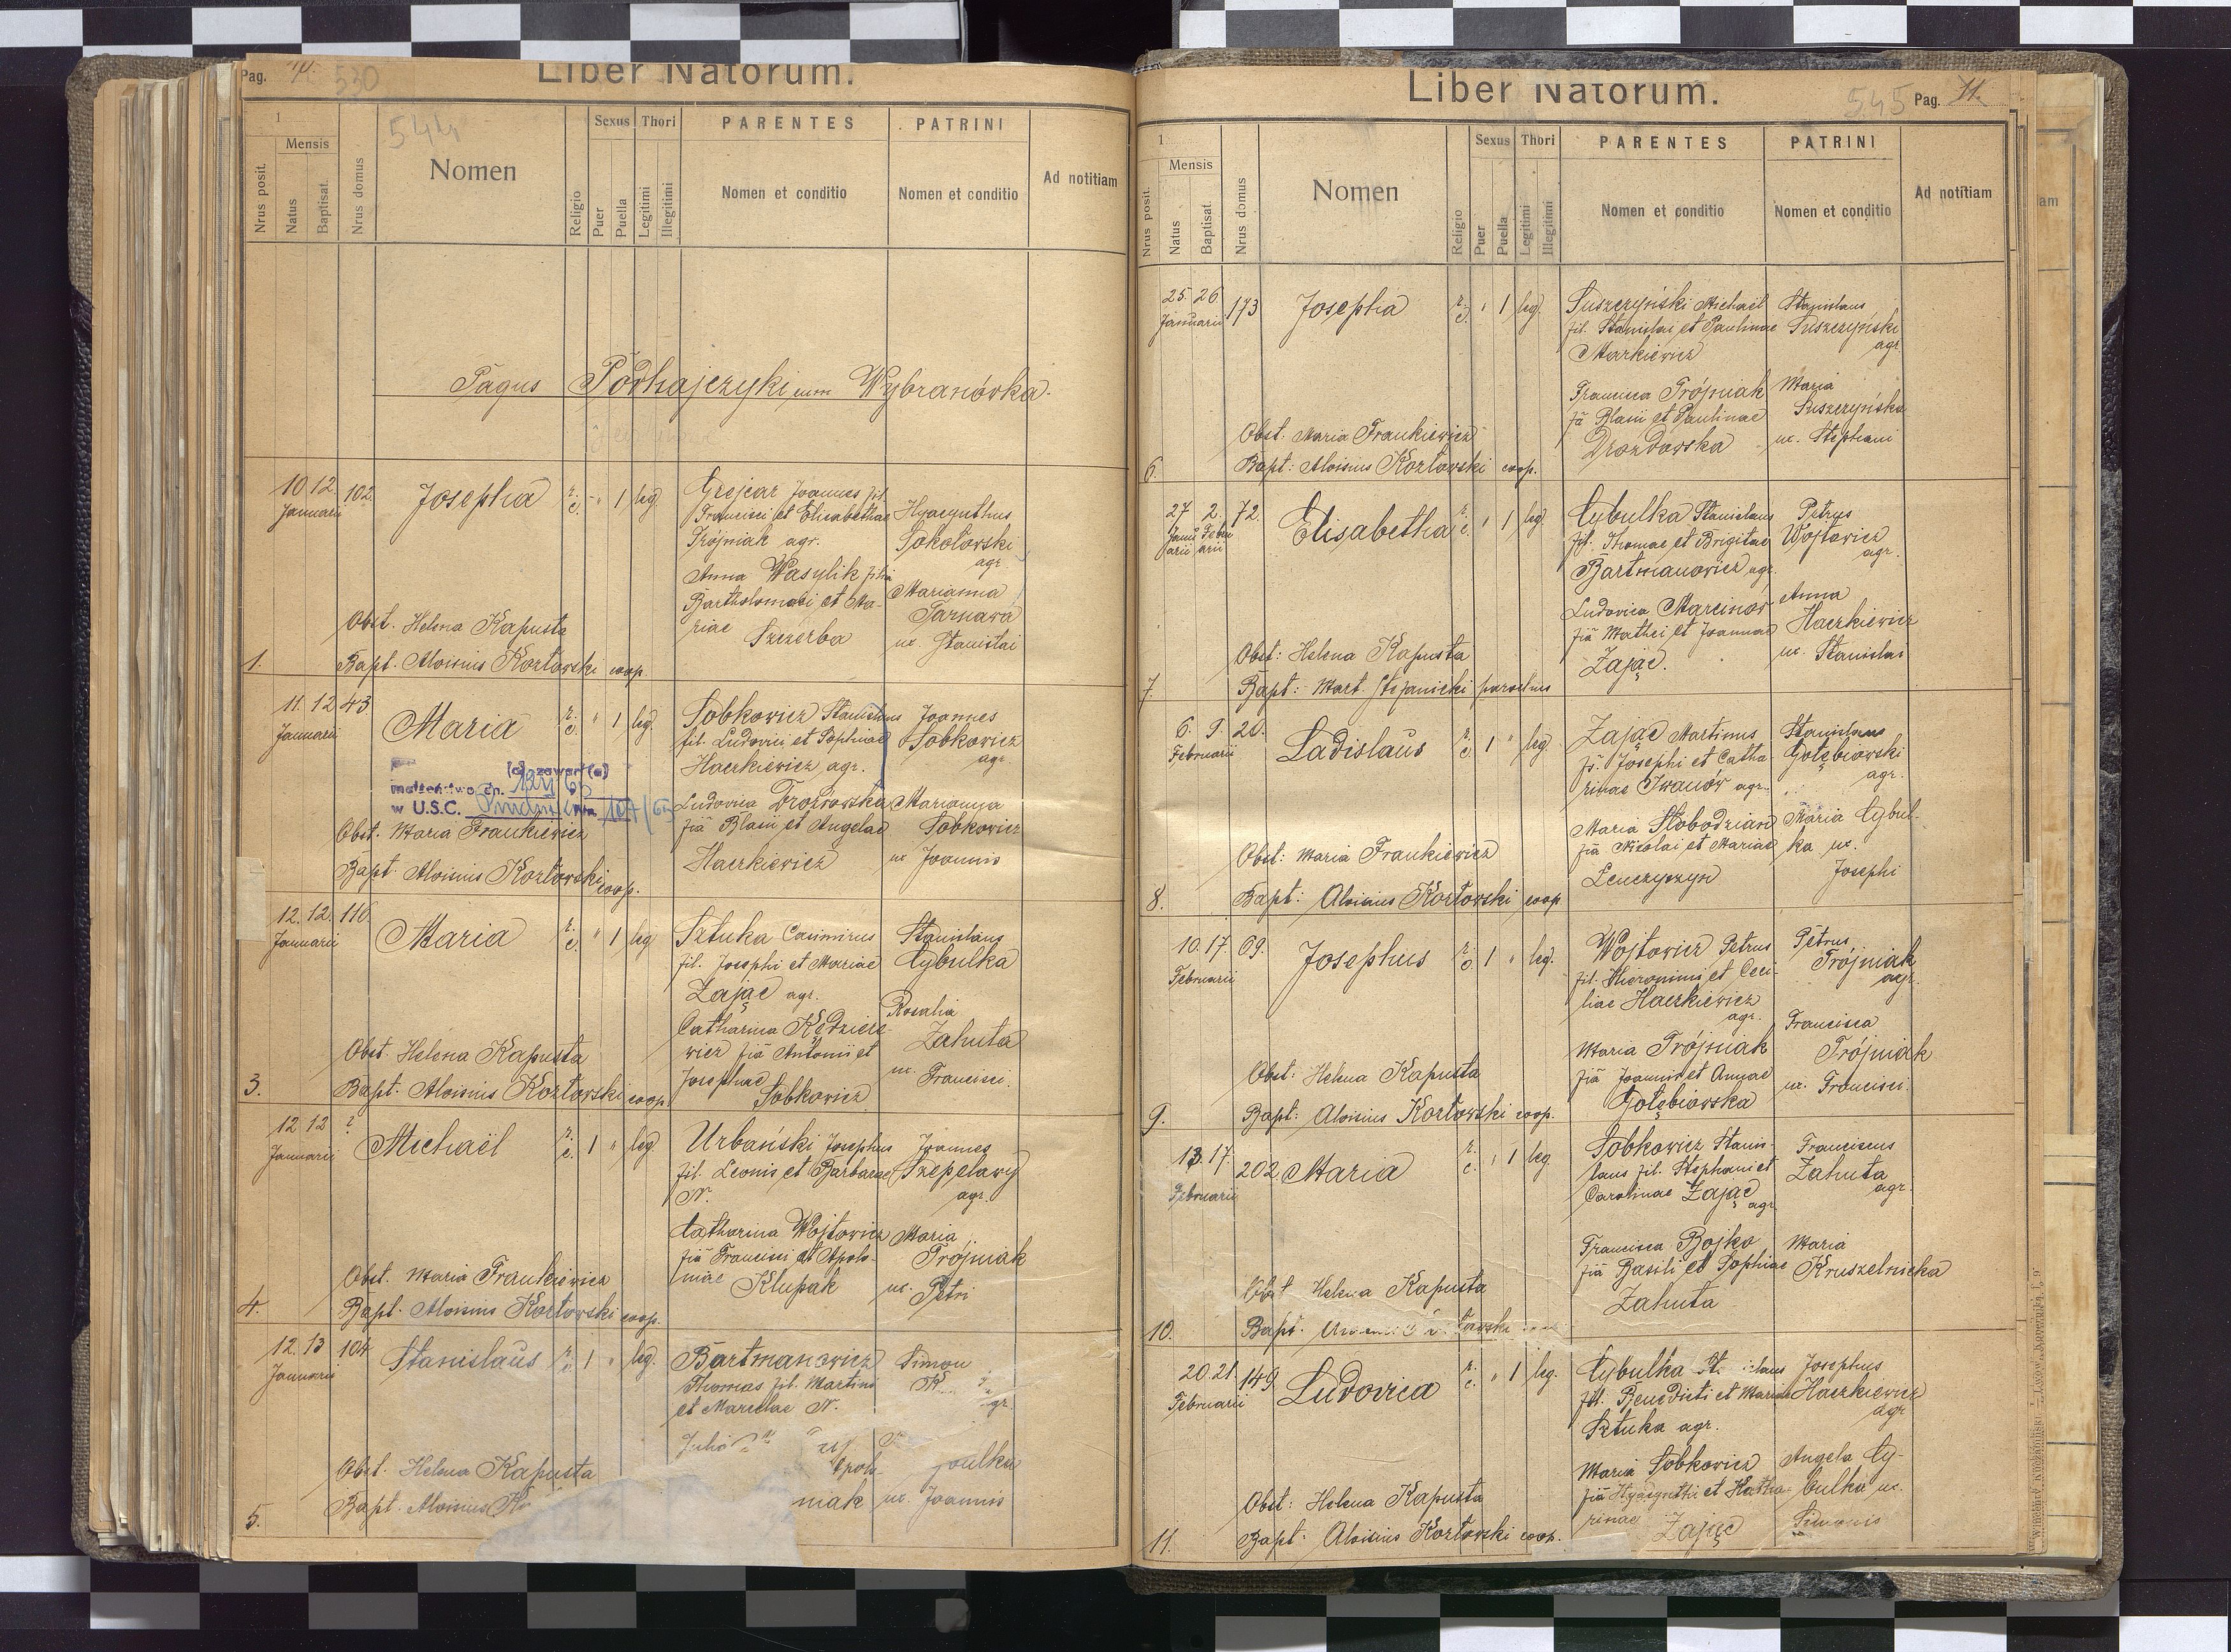 Pag.
530
Liber Natorum.
544
1
Mensis
Nrus posit.
Natus
Baptisat.
Nrus domus
Nomen
Religio
Sexus
Puer
Puella
Thori
Legitimi
Illegitimi
PARENTES
Nomen et conditio
PATRINI
Nomen et conditio
Ad notitiam
Pagus Podhajczyki cum Wybranówka.
10 12. 102. Josepha r. c. " 1 leg.
Januarii
Grejcar Joannes fil.
Francisci et Elisabethae
Trójniak agr.
Anna Wasylik filia
Bartholomaei et Ma-
riae Szczerba
Hyacynthus
Sokołowski
agr.
Marianna
Tarnawa
ux. Stanislai
Obst. Helena Kapusta
1. Bapt. Aloisius Kozłowski coop.
11. 12 43 Maria r. c. " 1 leg.
Januarii
Sobkowicz Stanislaus
fil. Ludovici et Sophiae
Haczkiewicz agr.
Ludovica Drozdowska
fiä Blasii et Angelae
Haczkiewicz
Joannes
Sobkowicz
agr.
Marianna
Sobkowicz
ux. Joannis
(a) zawarł(a)
małżeństwo dn.
w U.S.C.
Obst. Maria Frankiewicz
Bapt. Aloisius Kozłowski coop.
12. 12. 116 Maria r. c. " 1 leg
Januarii
Sztuka Casimirus
fil. Josephi et Mariae
Zając agr.
Catharina Kędziere-
wicz fiä Antonii et
Josephae
Sobkowicz
Stanislaus
Cybulka
Rosalia
Zahuta
ux. Francisci.
Obst. Helena Kapusta
3. Bapt. Aloisius Kozłowski coop.
12 12 ? Michaël r. c. 1 " leg
Januarii
Urbański Josephus
fil. Leonis et Barbarae
N.
Catharina Wojtowicz
fiä Francisci et Apolo-
niae Klupak
Joannes
Szepelawy
agr.
Maria
Trójniak
ux. Petri
Obst. Maria Frankiewicz
4. Bapt. Aloisius Kozłowski coop.
12. 13 104 Stanislaus r. c. 1 " leg.
Januarii
Bartmanowicz
Thomas fil. Martini
et Marcelae N.
Simon
ux. Joannis
Obst. Helena Kapusta
5. Bapt. Aloisius
Liber Natorum.
545 Pag. 11.
1
Mensis
Nrus posit.
Natus
Baptisat.
Nrus domus
Nomen
Religio
Sexus
Puer
Puella
Thori
Legitimi
Illegitimi
PARENTES
Nomen et conditio
PATRINI
Nomen et conditio
Ad notitiam
25. 26. 173 Josepha r. c. " 1 leg.
Januarii
Suszczyński Michaël
fil. Stanislai et Paulinae
Markiewicz
Francisca Trójniak
fä Blasii et Paulinae
Drozdowska
Stanislaus
Suszczyński
agr
Maria
Suszczyńska
ux. Stephani
Obst. Maria Frankiewicz
6. Bapt: Aloisius Kozłowski coop.
27 2. 72. Elisabetha r. c. " 1 leg.
Janu Febru
arii arii
Cybulka Stanislaus
fil. Thomae et Brigitae
Bartmanowicz agr.
Ludovica Marcinów
fiä Mathei et Joannae
Zając.
Petrus
Wojtowicz
agr.
Anna
Haczkiewicz
ux. Stanislai
Obst: Helena Kapusta
7. Bapt: Mart. Stepanicki parochus
6. 9. 20. Ladislaus r. c. 1 " leg.
Februarii
Zając Martinus
fi. Josephi et Catha
rinae Iwanów agr.
Maria Słobodzian
fiä Nicolai et Mariae
Lenczyszyn
Stanislaus
Gołębiowski
agr.
Maria Cybul-
ka ux.
Josephi
Obst: Maria Frankiewicz
8. Bapt: Aloisius Kozłowski coop
10. 17. 69. Josephus r. c. 1 " leg.
Februarii
Wojtowicz Petrus
fil. Hieronimi et Ceci-
liae Haczkiewicz
agr.
Maria Trójniak
fiä Joannis et Annae
Gołębiowska
Petrus
Trójniak
agr.
Francisca
Trójniak
ux. Francisci.
Obst: Helena Kapusta
9. Bapt: Aloisius Kozłowski coop.
13. 17. 202. Maria r. c. " 1 leg
Februarii
Sobkowicz Stanis-
laus fil. Stephani et
Carolinae Zając
agr.
Francisca Bojko
fiä Basili et Sophiae
Zahuta
Franciscus
Zahuta
agr.
Maria
Kruszelnicka
Obst Helena Kapusta
10. Bapt.
20. 21. 149 Ludovica r. c. " 1 leg.
Februarii
Cybulka
fil. Benedicti et Mariae
Sztuka agr.
Maria Sobkowicz
fiä Hyacynthi et Katha-
rinae Zając
Josephus
Haczkiewicz
agr
Angela Cy-
bulka ux.
Simonis
Obst: Helena Kapusta
11. Bapt: Aloisius Kozłowski coop.